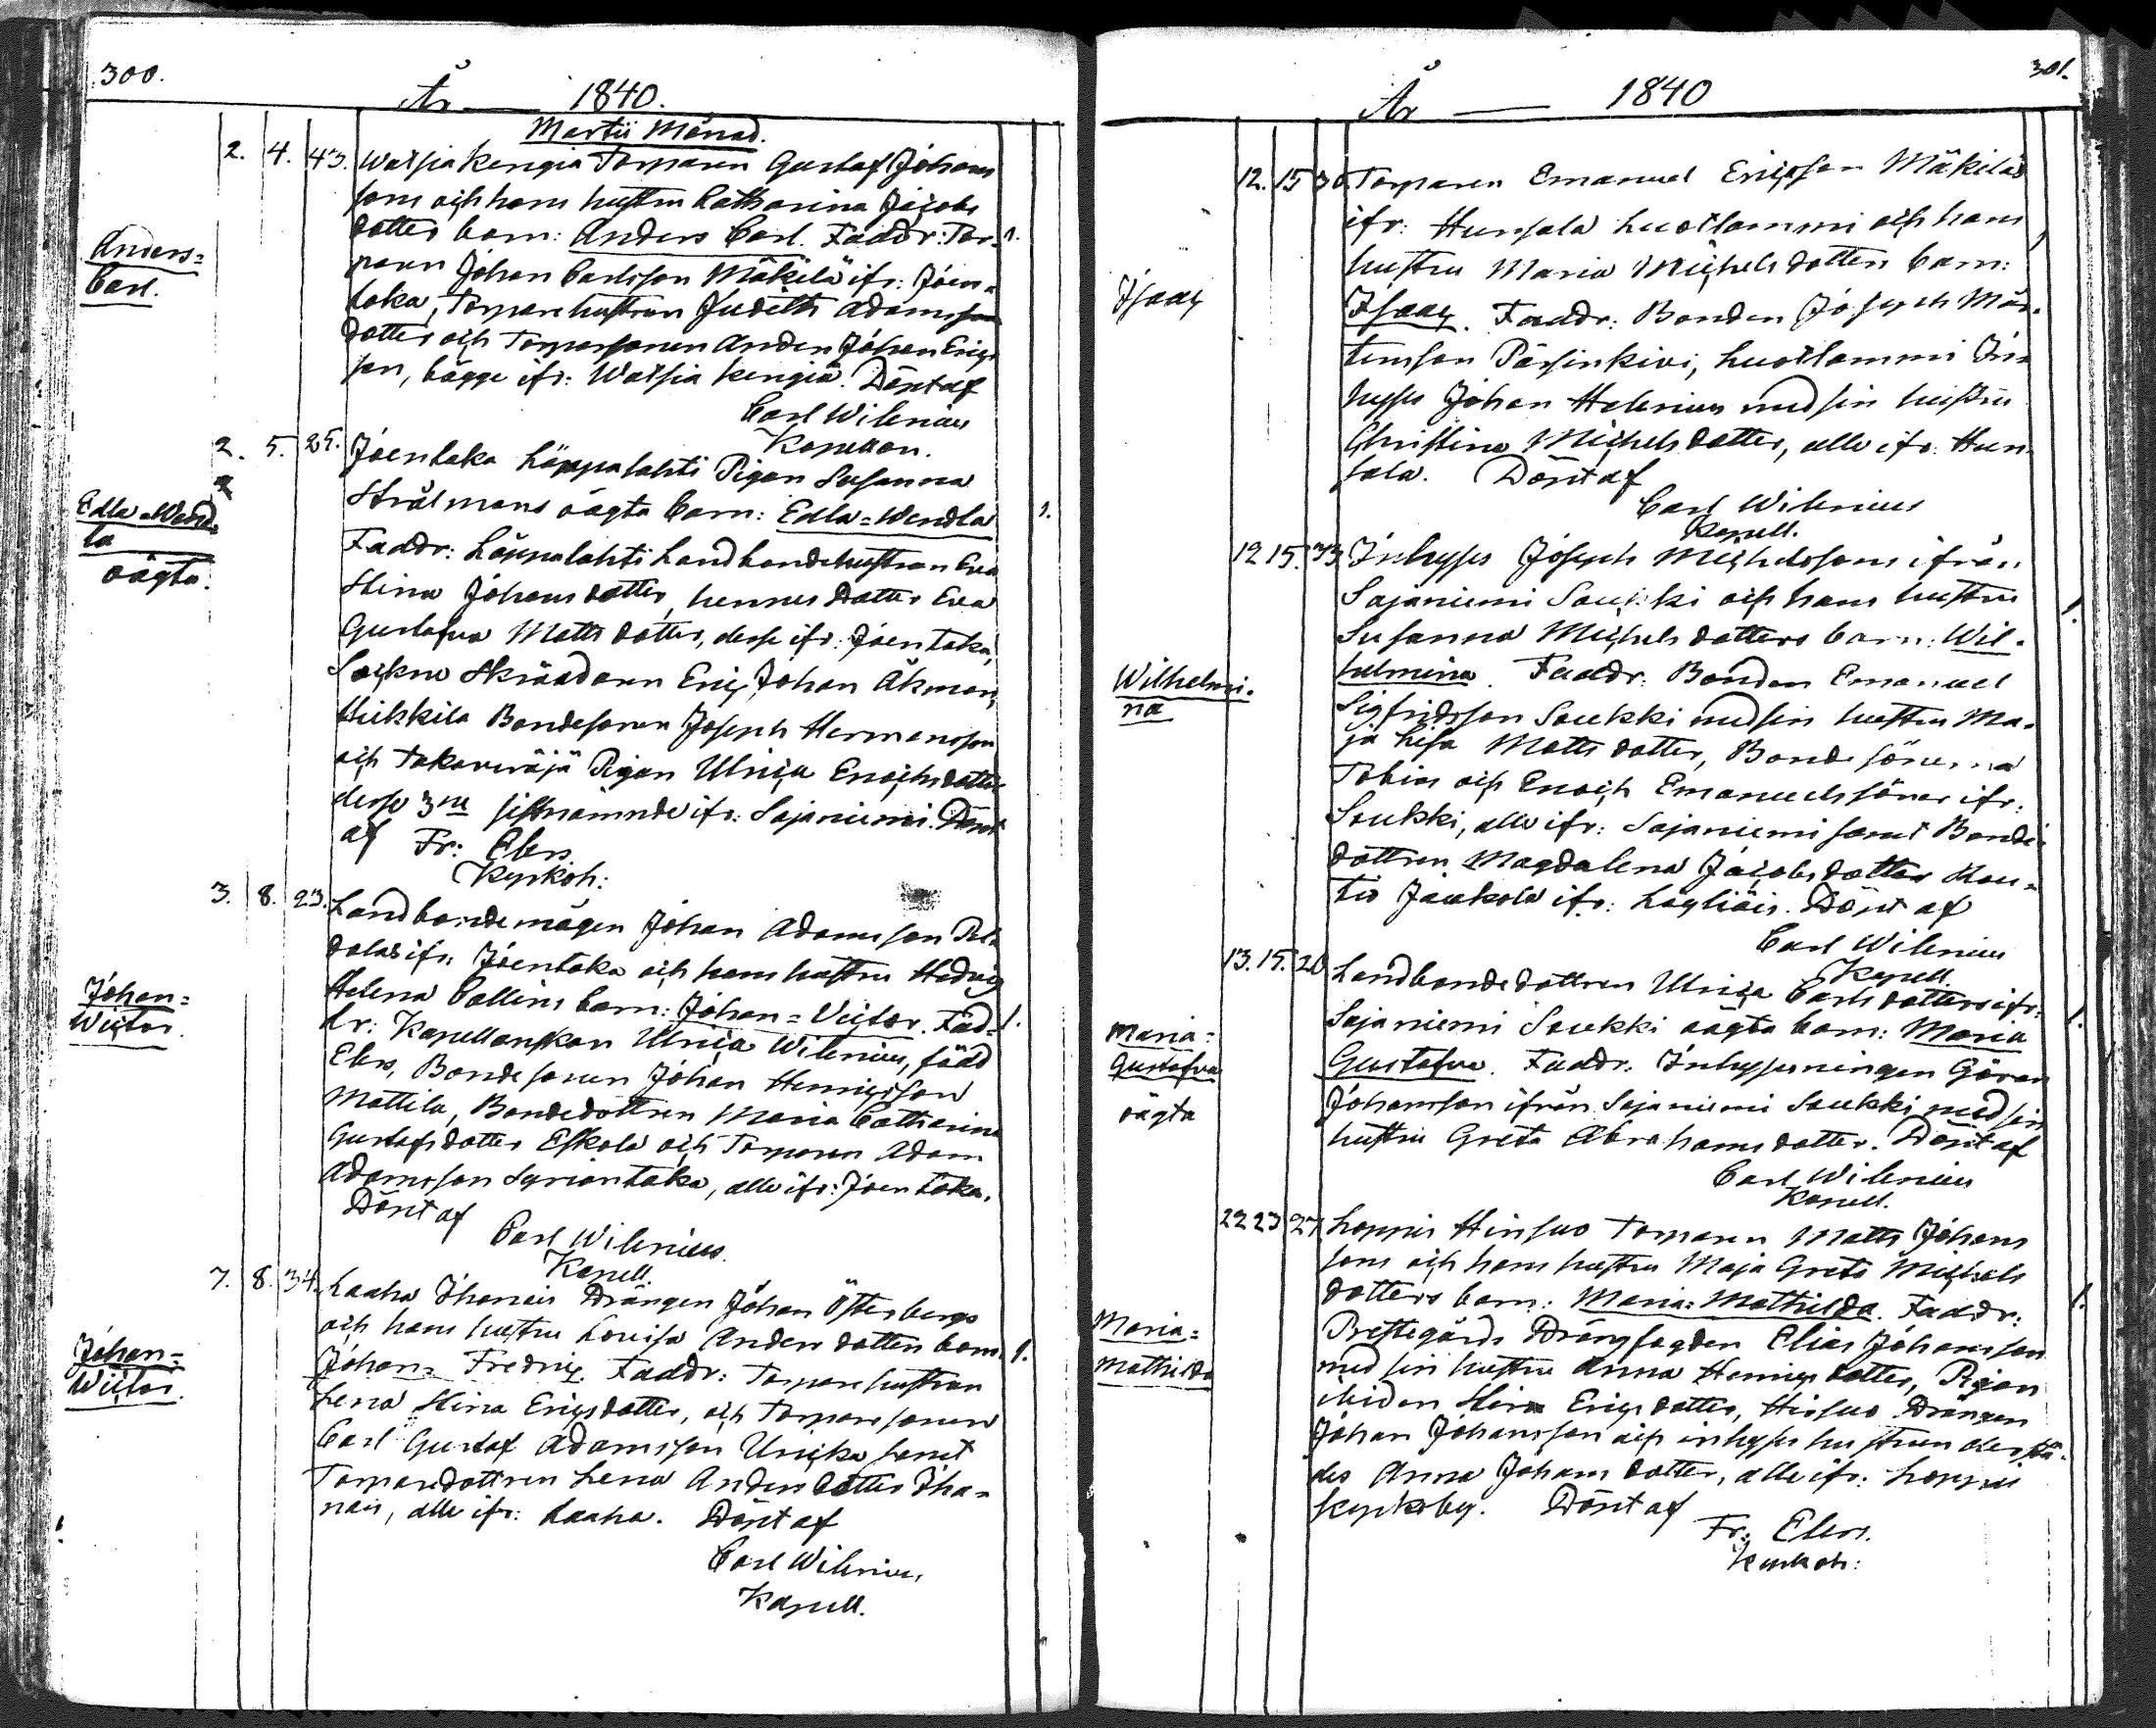 300.
År 1840.
Martii Månad.
2. 4. 43. Watsia kengiä Torparen Gustaf Johans
sons och hans hustru Catharina Jacobs
dotters barn: Anders Carl. Faddr: Tor- 1.
paren Johan Carlsson Mäkilä ifr: Joen-
Anders=
Carl.
taka, Torparehustrun Judith Adams
dotter och Torparsonen Anders Johan Erics
son, bägge ifr: Watsia kengiä. Döpt af
Carl Wilenius
Kapellan.
2. 5. 25. Joentaka Läppalahti Pigan Susanna
Strålmans oägta barn: Edla=Wendla 1.
Edla=Wend=
la
oägta.
Faddr: Läppalahti Landbondehustrun Eva
Stina Johansdotter, hennes Dotter Eva
Gustafva Matts dotter, desse ifr: Joentaka,
Sockne Skräddaren Eric Johan Åkman,
Heikkilä Bondesonen Joseph Hermansson
och Takaveräjä Pigan Ulrica Enochsdotter
desse 3ne sistnämnde ifr: Sajaniemi. Döpt
af Fr: Elers
Kyrkoh:
3. 8. 23. Landbondemågen Johan Adamsson Pel=
dolas ifr: Joentaka och hans hustru Hedvig
Helena Collins barn: Johan=Victor. Fad= 1.
Johan=
Victor.
dr: Kapellanskan Ulrica Wilenius, född
Elers, Bondesonen Johan Henricsson
Mattila, Bondedottren Maria Catharina
Gustafsdotter Eskola och Torparen Adam
Adamsson Syriantaka, alle ifr: Joentaka.
Döpt af
Carl Wilenius.
Kapell.
7. 8. 34. Laaha Ihanais Drängen Johan Österbergs
och hans hustru Lovisa Andersdotters barn 1.
Johan= Fredric. Faddr: Torparehustrun
Johan=
Victor.
Lena Stina Ericsdotter, och Torparesonen
Carl Gustaf Adamsson Unicka samt
Torparedottren Lena Andersdotter Iha=
nais, alle ifr: Laaha. Döpt af
Carl Wilenius,
Kapell.
301.
År 1840
12. 15 30. Torparen Emanuel Ericsson Mäkiläs
ifr: Hunsala Luotlammi och hans
hustru Maria Michelsdotters barn:
Isaac
Isaac. Faddr: Bonden Joseph Mår-
tensson Pärsinkivi, Luotlammi In-
hyses Johan Helenius med sin hustru
Christina Michelsdotter, alle ifr: Hun
sala. Döpt af
Carl Wilenius
Kapell.
12 15. 33 Inhyses Joseph Michelssons ifrån
Sajaniemi Soukki och hans hustru
Susanna Michelsdotters barn: Wil- 1.
helmina. Faddr: Bonden Emanuel
Wilhelmi-
na
Sigfridsson Soukki med sin hustru Ma-
ja Lisa Matts dotter, Bondesönerna
Tobias och Enoch Emanuelssöner ifr:
Soukki, alle ifr: Sajaniemi samt Bonde-
dottren Magdalena Jacobsdotter Kou-
tio Jaukola ifr: Läyliäis. Döpt af
Carl Wilenius
Kapell.
13. 15. 20 Landbondedottren Ulrica Carlsdotters ifr:
Sajaniemi Soukki oägta barn: Maria 1.
Maria=
Gustafva
oägta
Gustafva. Faddr: Inhyseningen Göran
Johansson ifrån Sajaniemi Soukki med sin
hustru Greta Abrahamsdotter. Döpt af
Carl Wilenius
Kapell.
22 23 27 Loppis Hirsuo Torparen Matts Johans
sons och hans hustru Maja Greta Michels
dotters barn: Maria=Mathilda. Faddr: 1.
Maria=
Mathilda
Prestegårds Drängfogden Elias Johansson
med sin hustru Anna Henricsdotter, Pigan
Stina Ericsdotter, Hirsuo Drängen
Johan Johansson och inhyses hustrun derstä-
des Anna Johansdotter, alle ifr: Loppis
Kyrkoby. Döpt af
Fr: Elers.
Kyrkoh: